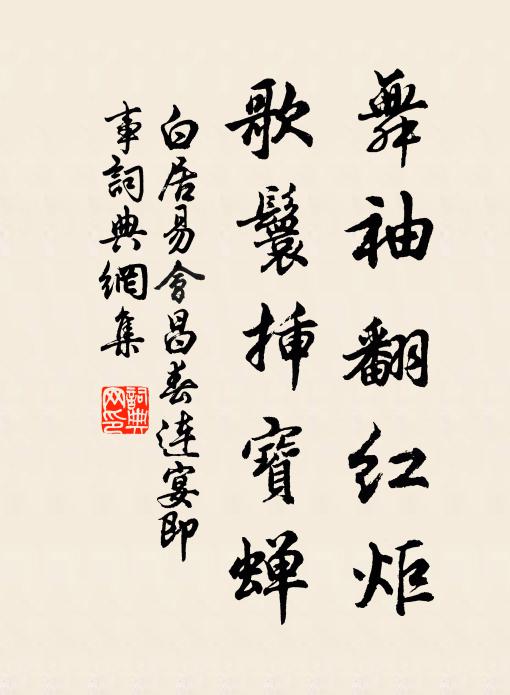 舞袖翻红炬
歌鬟插寶蝉
白居易會昌春连宴即
事詞典網集
詞典
网印